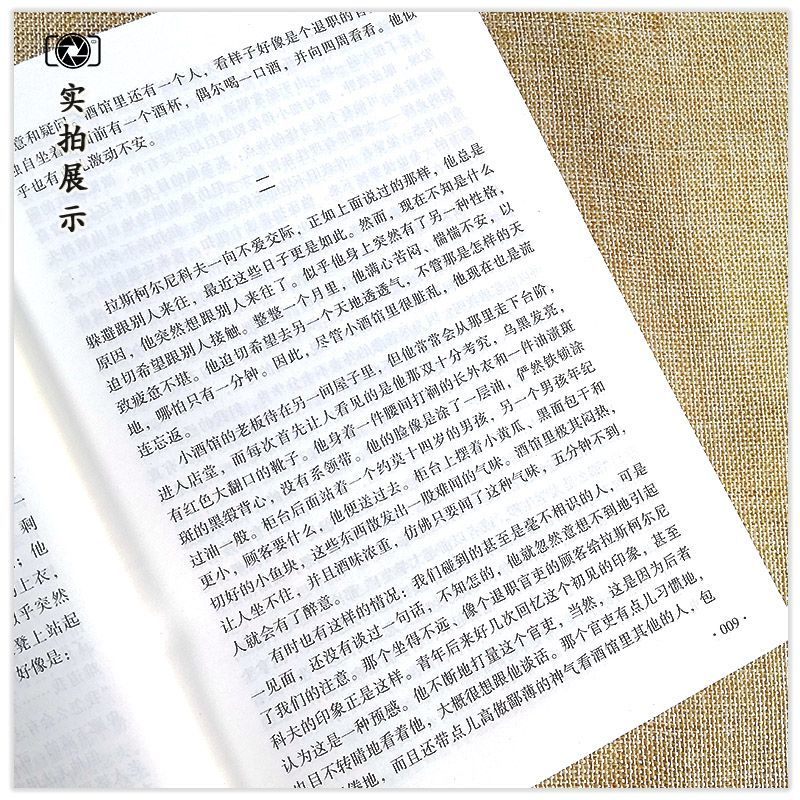 实拍展示
剩
；他
上衣，
似乎突然
凳上站起
好像是：
意和疑问。酒馆里还有一个人，看样子好像是个退职的官
独自坐着，面前有一个酒杯，偶尔喝一口酒，并向四周看看。他似
乎也有点儿激动不安。
二
拉斯柯尔尼科夫一向不爱交际，正如上面说过的那样，他总是
躲避跟别人来往，最近这些日子更是如此。然而，现在不知是什么
原因，他突然想跟别人来往了。似乎他身上突然有了另一种性格，
迫切希望跟别人接触。整整一个月里，他满心苦闷、惴惴不安，以
致疲惫不堪。他迫切希望去另一个天地透透气，不管那是怎样的天
地，哪怕只有一分钟。因此，尽管小酒馆里很脏乱，他现在也是流
连忘返。
小酒馆的老板待在另一间屋子里，但他常常会从那里走下台阶，
进入店堂，而每次首先让人看见的是他那双十分考究，乌黑发亮，
有红色大翻口的靴子。他身着一件腰间打裥的长外衣和一件油渍斑
斑的黑缎背心，没有系领带。他的脸像是涂了一层油，俨然铁锁涂
过油一般。柜台后面站着一个约莫十四岁的男孩，另一个男孩年纪
更小，顾客要什么，他便送过去。柜台上摆着小黄瓜、黑面包干和
切好的小鱼块，这些东西散发出一股难闻的气味。酒馆里极其闷热，
让人坐不住，并且酒味浓重，仿佛只要闻了这种气味，五分钟不到，
人就会有了醉意。
有时也有这样的情况：我们碰到的甚至是毫不相识的人，可是
一见面，还没有谈过一句话，不知怎的，他就忽然意想不到地引起
了我们的注意。那个坐得不远、像个退职官吏的顾客给拉斯柯尔尼
科夫的印象正是这样。青年后来好几次回忆这个初见的印象，甚至
认为这是一种预感。他不断地打量这个官吏，当然，这是因为后者
也目不转睛地看着他，大概很想跟他谈话。那个官吏有点儿习惯地，
倦地，而且还带点儿高傲鄙薄的神气看酒馆里其他的人，包
· 009 ·